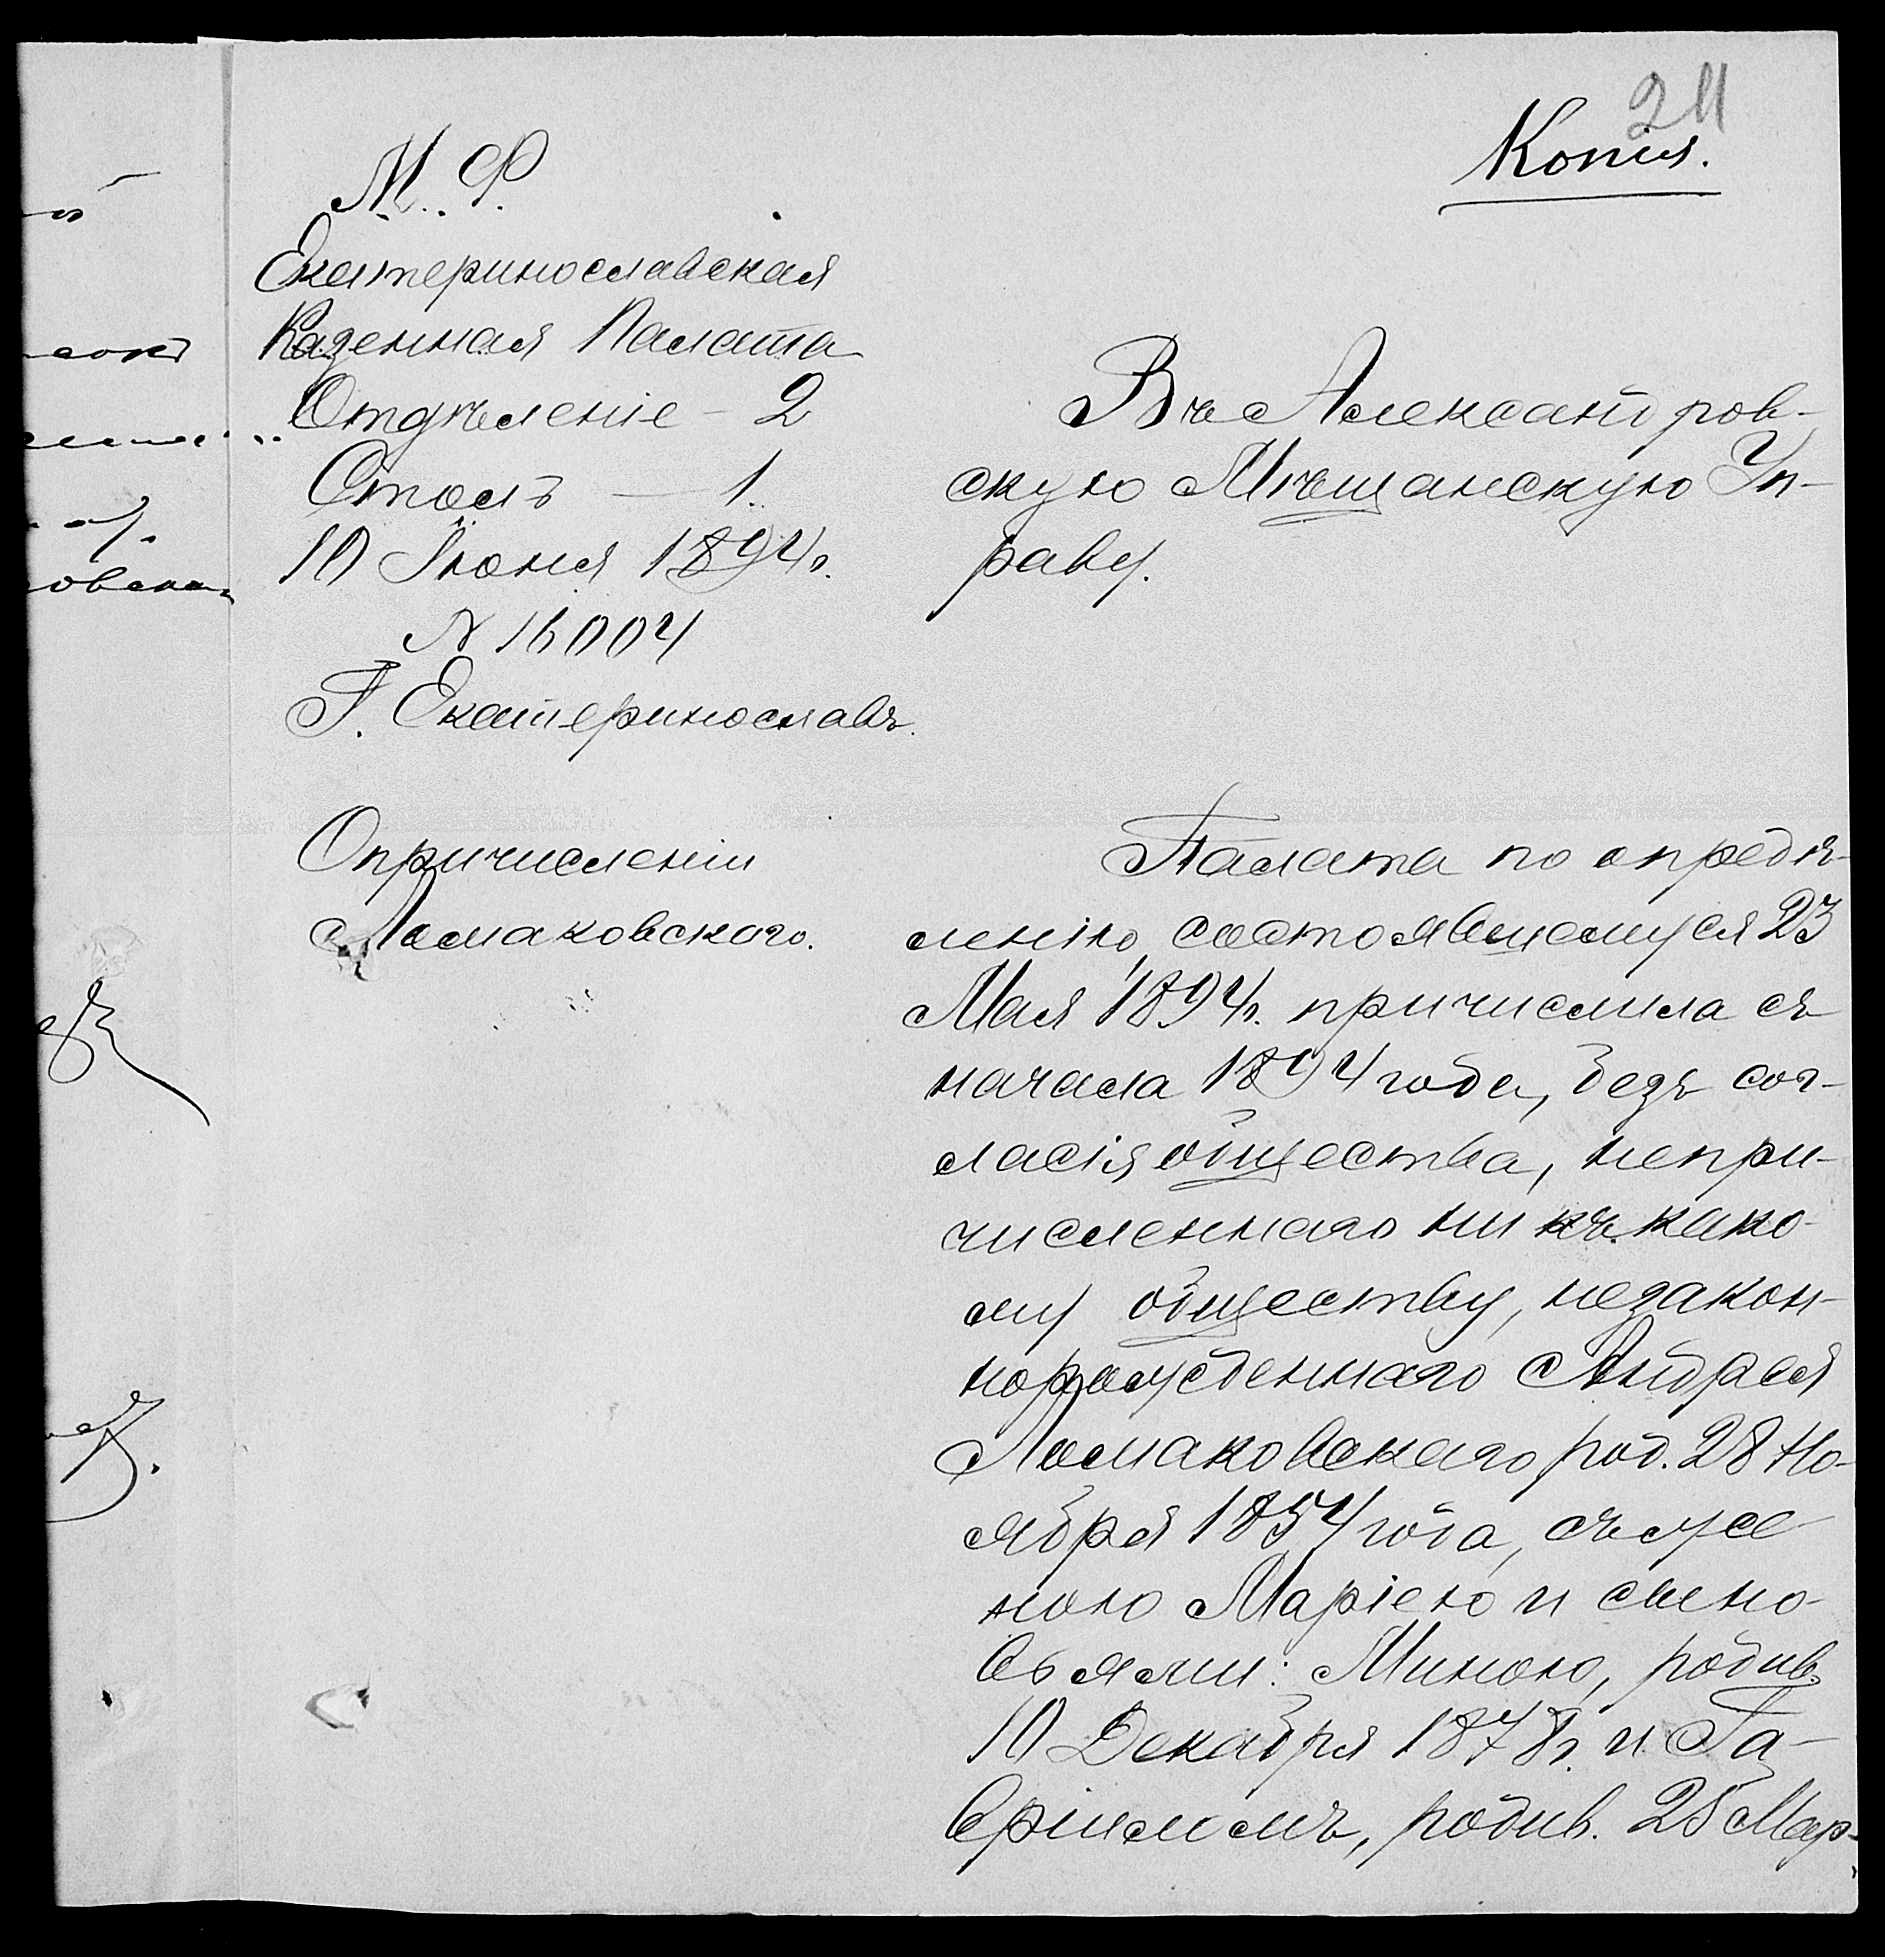 211
Копія.
М. Ф.
Екатеринославская
Казенная Палата
Отдѣленіе – 2
Столъ – 1.
10 Іюня 1894 г.
№ 16004
Г. Екатеринославъ.
Въ Александров-
скую Мѣщанскую Уп-
раву.
О причисленіи
Ломаковскаго.
Палата по опредѣ-
ленію, состоявшемуся 23
Мая 1894 г. причислила съ
начала 1894 года, безъ сог-
ласія общества, непри-
численнаго ни къ како-
му обществу, незакон-
норожденнаго Андрея
Ломаковскаго род. 28 Но-
ября 1854 года, съ же
ною Маріею и сыно-
вьями: Миною, родив.
10 Декабря 1878 г. и Га-
вріиломъ, родив. 25 Мар-